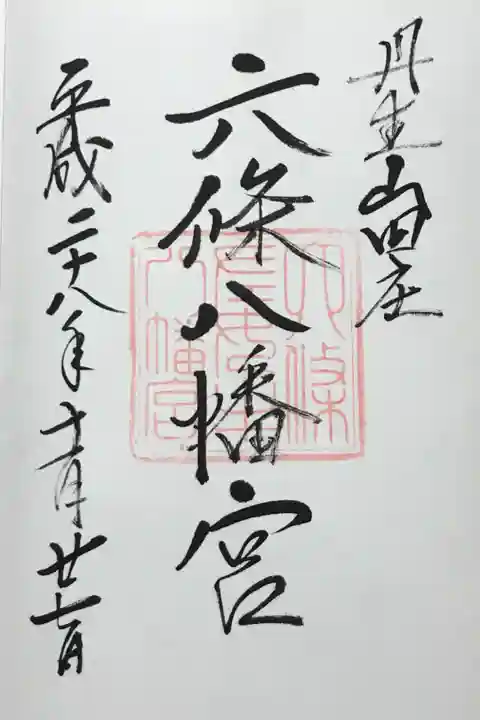 丹生山田庄
六條八幡宮
平成二十八年十一月廿七日